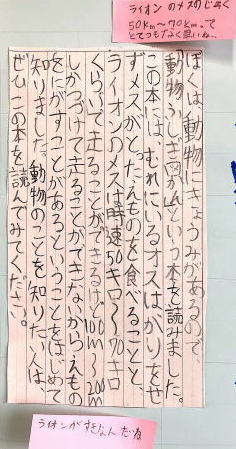 ライオンのメスのじそく
50km~70kmって
とてつもなく早いね、
ぼくは、動物にきょうみがあるので、
動物ふしぎ図かんという本を読みました。
この本には、むれにいるオスはかりをせ
ずメスがとったえものを食べることと、
ライオンのメスは時速50キロ~70キロ
くらいで走ることができるけど100m~200m
しかつづけて走ることができないから、えもの
をにがすことがあるということをはじめて
知りました。動物のことを知りたい人は、
ぜひこの本を読んでみてください。
ライオンがすきなんだね